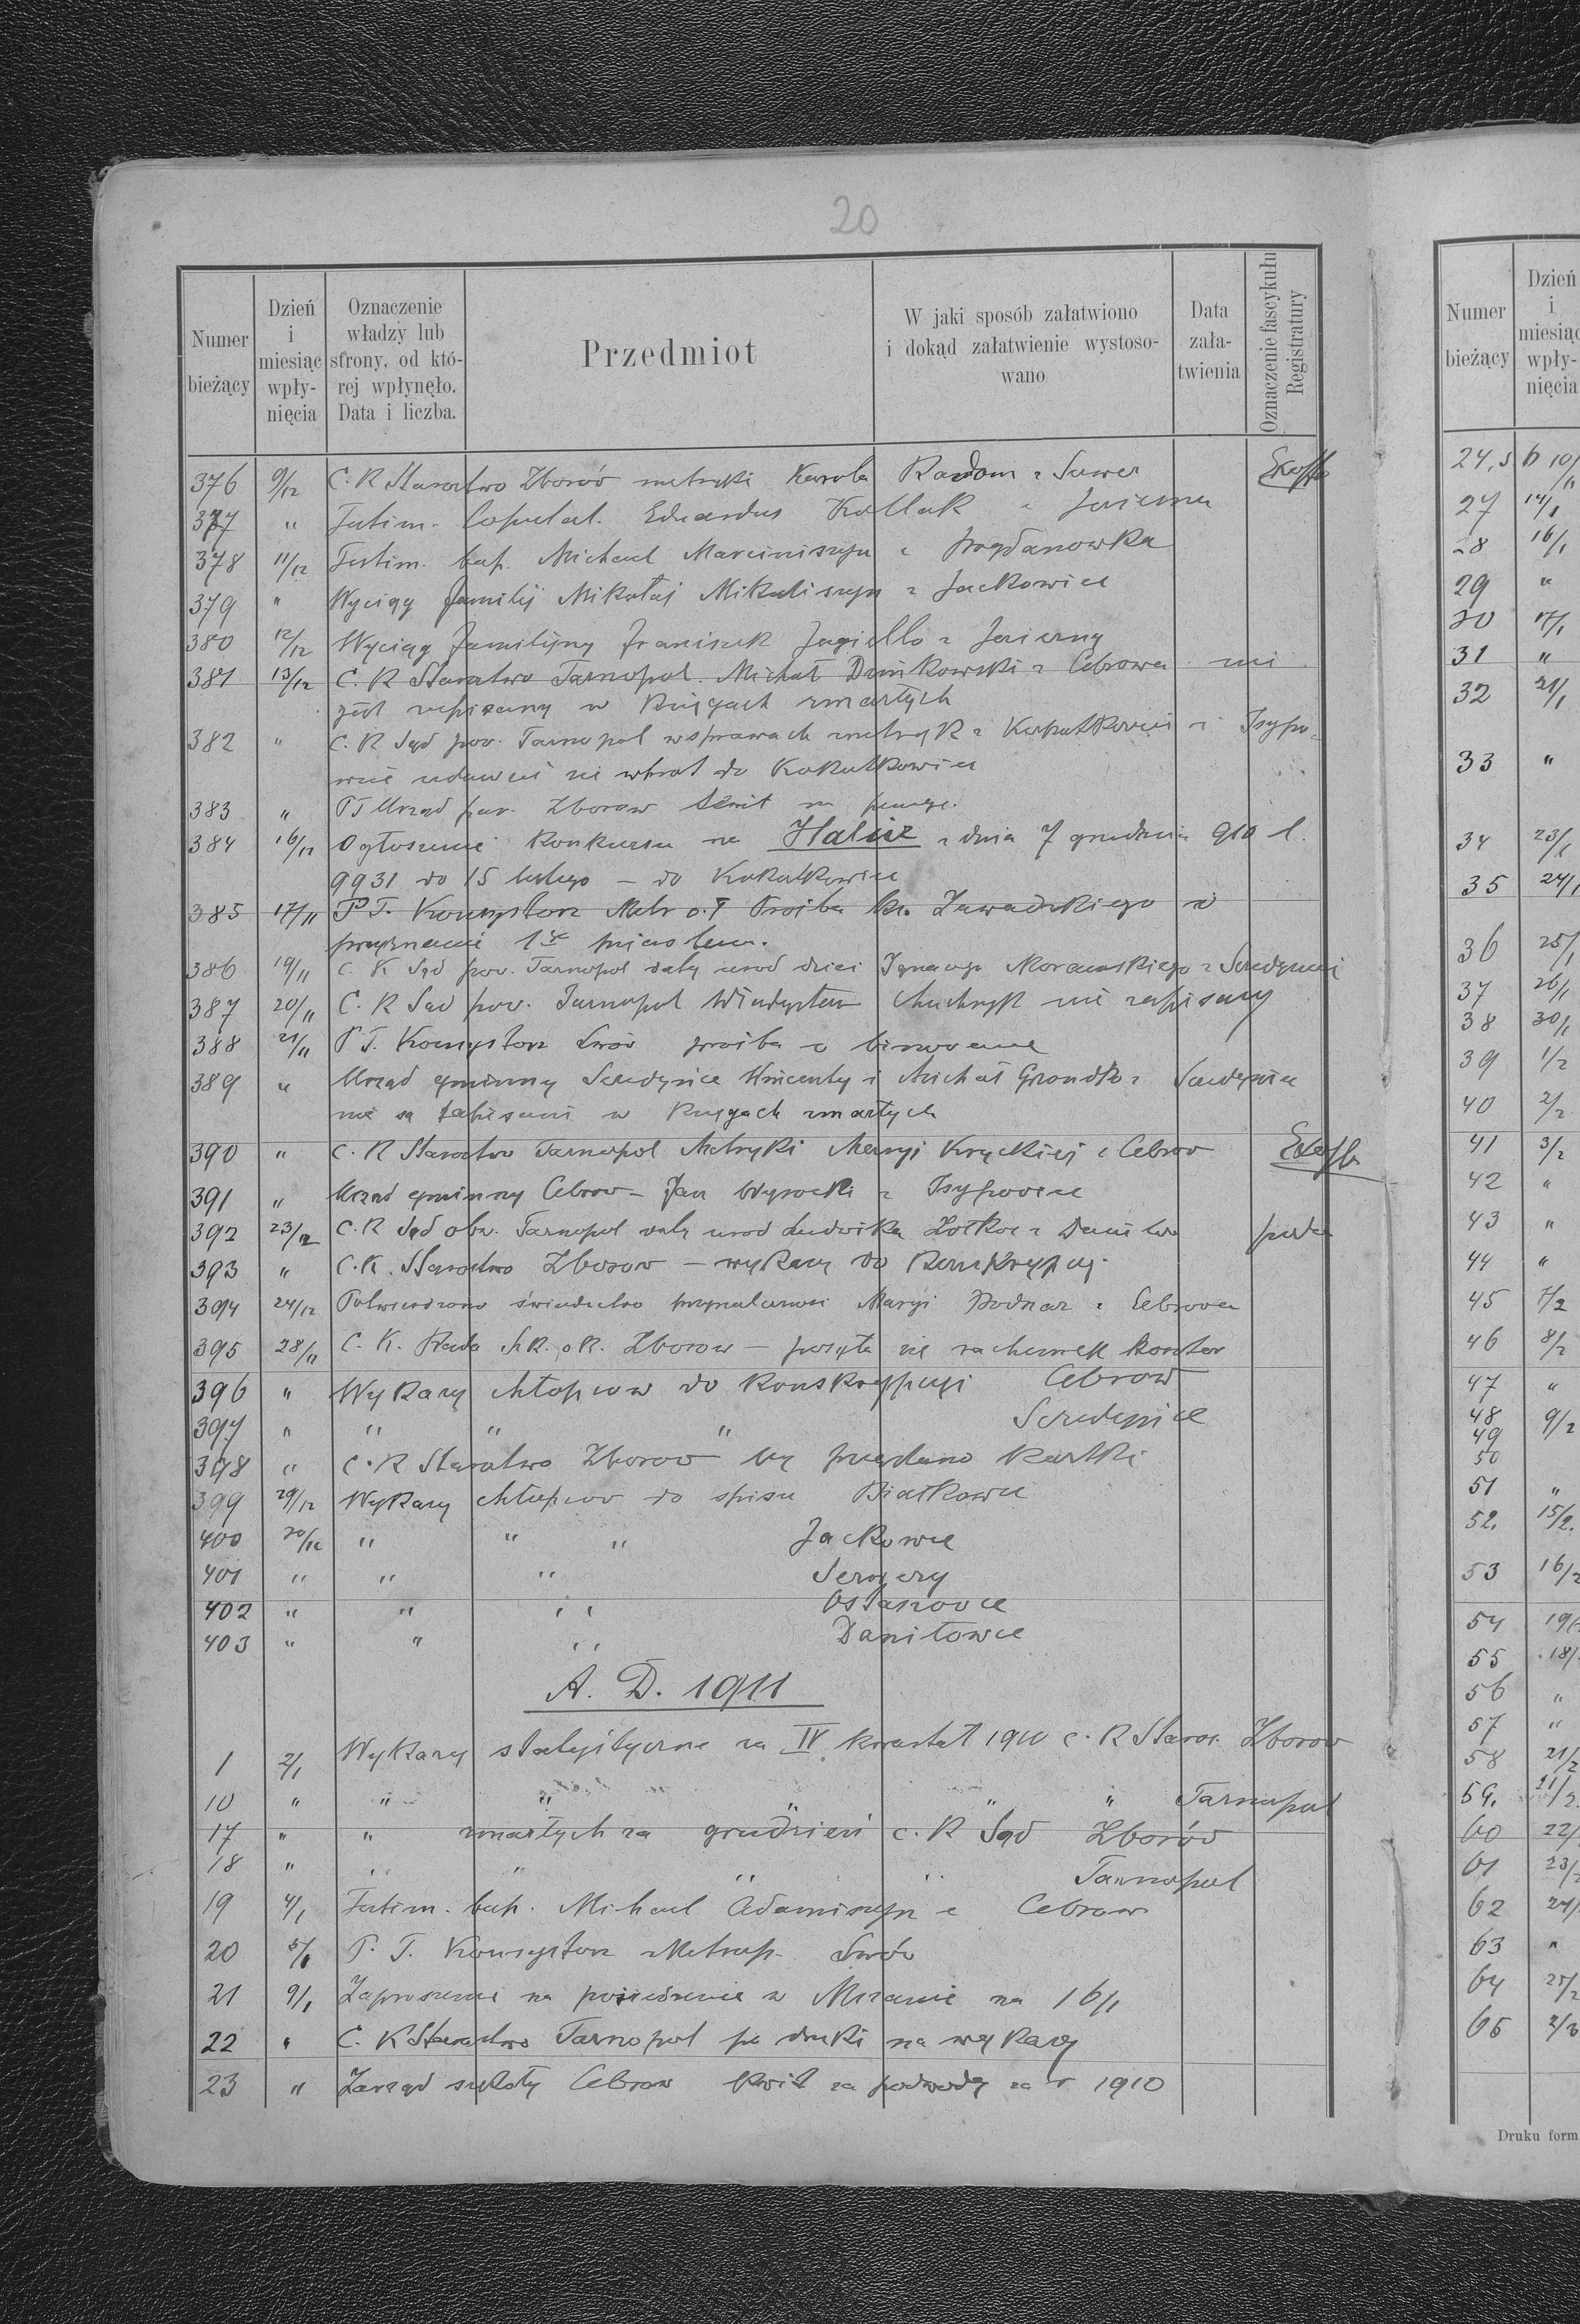 20
Numer bieżący
Dzień i miesiąc wpły- nięcia
Oznaczenie władzy lub strony, od któ- rej wpłynęło. Data i liczba.
Przedmiot
W jaki sposób załatwiono i dokąd załatwienie wystoso- wano
Data zała- twienia
Oznaczenie fascykułu Registratury
376 9/12 C. K Starostwo Zborów metryki Karola Radom z
377 " Testim. Copulat. Eduardus Kollak z Jezierna
378 11/12 Testim. bap. Michael Marciniszyn z Bogdanowka
379 " Wyciąg familij Mikołaj Mikuliszyn z Jackowiec
380 12/12 Wyciąg familijny Franciszek Jagiełło z Jezierny
381 13/12 C. K Starostwo Tarnopol. Michał z Cebrowa nie
jest zapisany w księgach zmarłych
382 " C. K Sąd pow. Tarnopol w sprawach metryk z Kokutkowiec i Isypo-
wiec udawać się wprost do Kokutkowiec
383 " PT Urząd par. Zborow
384 16/12 Ogłoszenie Konkursu na Halicz z dnia 7 grudnia 910 l.
9931 do 15 lutego – do Kokutkowiec
385 17/11 P T. Konsystorz Metr o. ł Prośba ks. Zawadzkiego o
przyznanie
386 19/11 C. K Sąd pow. Tarnopol daty urod dzieci Ignacego Morawskiego z Seredyniec
387 20/11 C. K Sad pow. Tarnopol Władysław nie zapisany
388 21/11 P T. Konsystorz Lwów prośba o
389 " Urząd gminny Seredynce Wincenty i Michał z Seredyniec
nie są zapisani w księgach zmarłych
390 " C. K Starostwo Tarnopol Metryki Maryi Kryckiej z Cebrow
391 " Urząd gminny Cebrow – Jan Wysocki z Isypowiec
392 23/12 C. K Sąd obw. Tarnopol daty urod Ludwika z
393 " C. K. Starostwo Zborow – wykazy do konskrypcyi
394 24/12 Potwierdzono świadectwo przynależności Maryi Bodnar z Cebrowa
395 28/11 C. K. Rada Szk. ok. Zborow – rachunek
396 " Wykazy chłopcow do konskrypcyi Cebrow
397 " " " " Seredynce
398 " C. K Starostwo Zborow kartki
399 29/12 Wykazy chłopcow do spisu Białkowce
400 30/12 " " " Jackowce
401 " " " Serwery
402 " " " Ostaszowce
403 " " " Daniłowce
A. D. 1911
1 2/1 Wykazy statystyczne za IV. kwartał 1910 C. K Staros. Zborow
10 " " " " " " Tarnopol
17 " " zmarłych za grudzień C. K Sąd Zborów
18 " " " " " Tarnopol
19 4/1 Testim. bap. Michael Adamiszyn z Cebrow
20 5/1 P. T. Konsystorz Metrop. Lwów
21 9/1 Zaproszenie na posiedzenie w na 16/1
22 " C. K Starostwo Tarnopol po druki na wykazy
23 " Zarząd szkoły Cebrow kwit za podwody za r 1910
Numer bieżący
Dzień i miesiąc wpły- nięcia
27 14/1
28 16/1
29 "
30 17/1
31 "
32 21/1
33 "
34 23/1
35 24/1
36 25/1
37 26/1
38 30/1
39 1/2
40 2/2
41 3/2
42 "
43 "
44 "
45 7/2
46 8/2
47 "
48 9/2
49
50
51 "
52. 15/2.
53 16/2
54
55
56 "
57 "
58 21/2
59. 21/2
60 22/
61 23/2
62 24/
63 "
64 25/2
65
Druku form